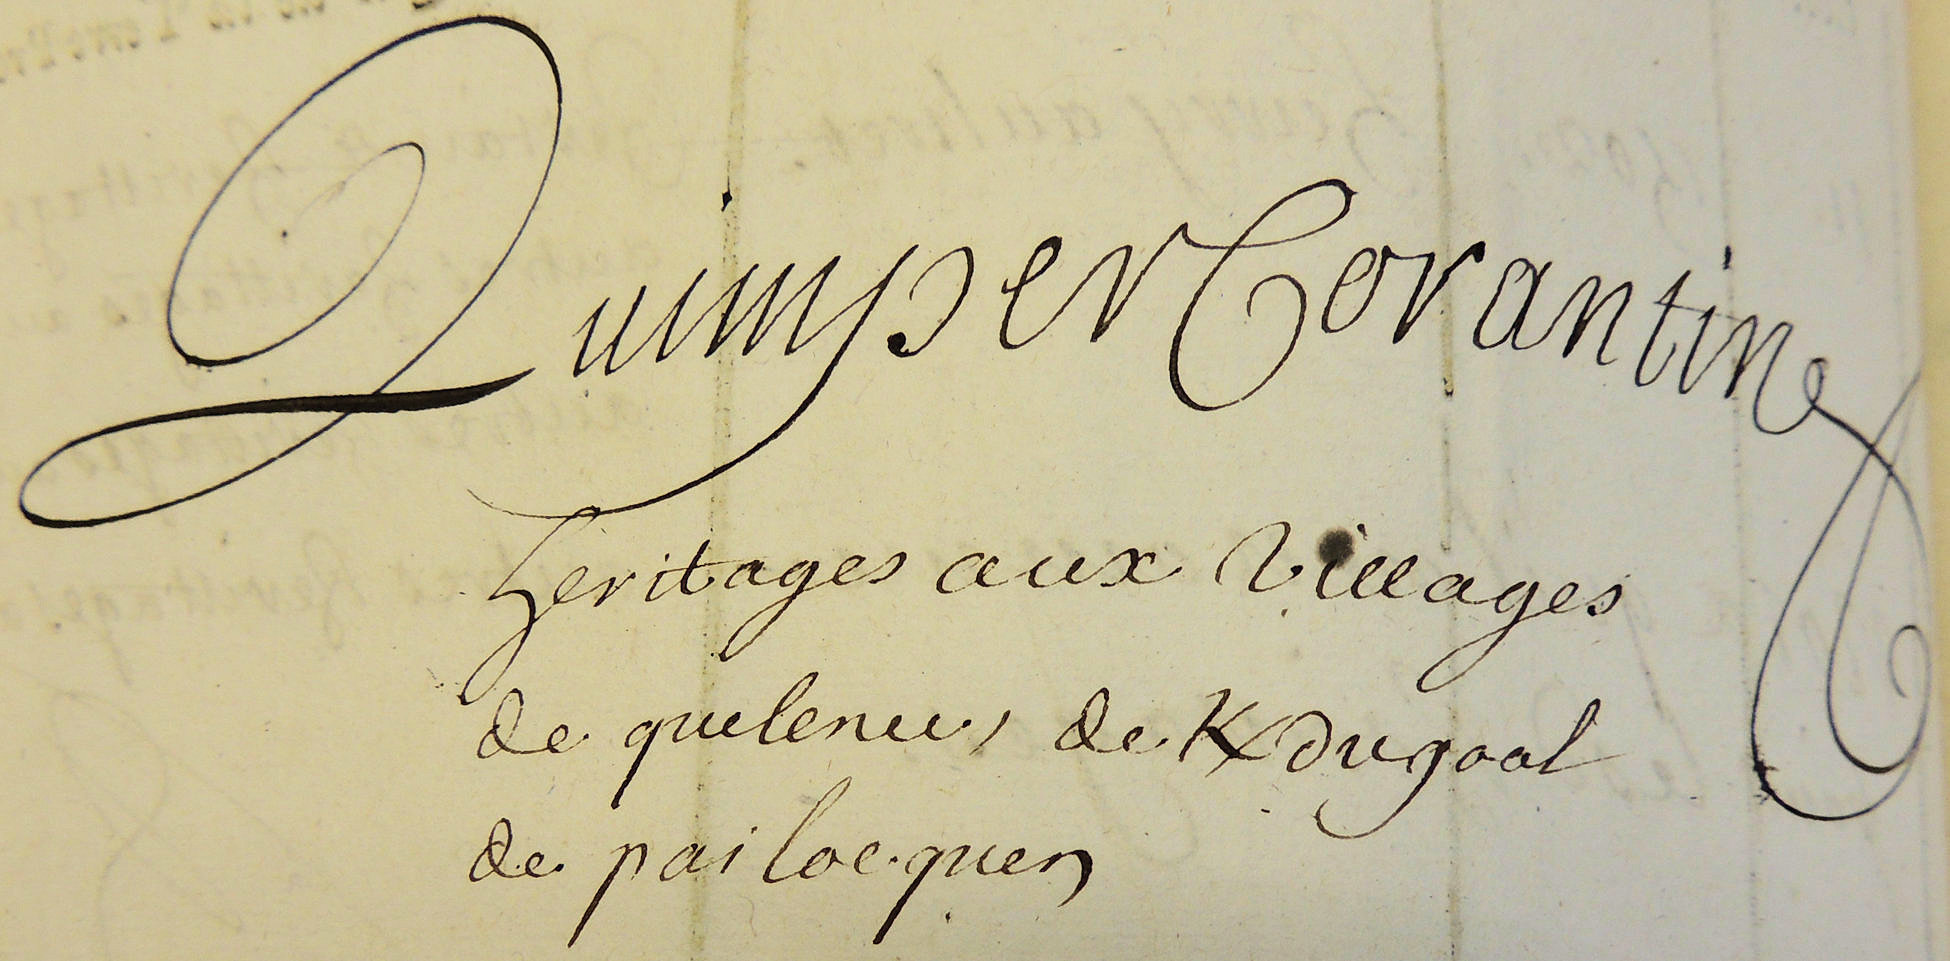 Quimper Corantin
heritages aux Villages
de quelenec, de Kdugoal
de pailocquen